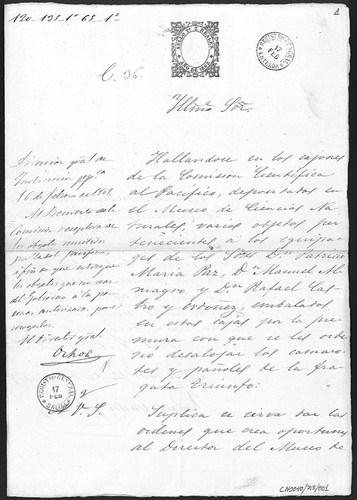 120-138-1º 68-1º
1
SELLO 9º
REGISTRO GENERAL
17
FEB
ENTRADA
C. 36.
Yllmo Sor.
Dirección gral de
Instrucción ppca
16 de febrero de
Al Presidente de la
Comisión receptiva de
los objetos remitidos
por la del Pacífico,
a fin de que entregue
los objetos que no sean
del Gobierno a la per-
sona autorizada para
recogerlos.
El Director gral.
Ochoa
REGISTRO GENERAL
17
FEB
SALIDA
Hallandose en los cajones
de la Comision Cientifica
al Pacifico, depositados en
el Museo de Ciencias Na-
turales, varios objetos per-
tenecientes á los equipa-
ges de los Sres Dn Patricio
Maria Paz, Dn Manuel Al-
magro y Dn Rafael Cas-
tro y Ordoñez, embalados
en estas cajas por la pre-
mura con que se les orde-
no desalojar los camaro-
tes y pañoles de la fra-
gata Triunfo:
Suplica se sirva dar las
ordenes que crea oportunas
al Director del Museo de
CN0040/713/001